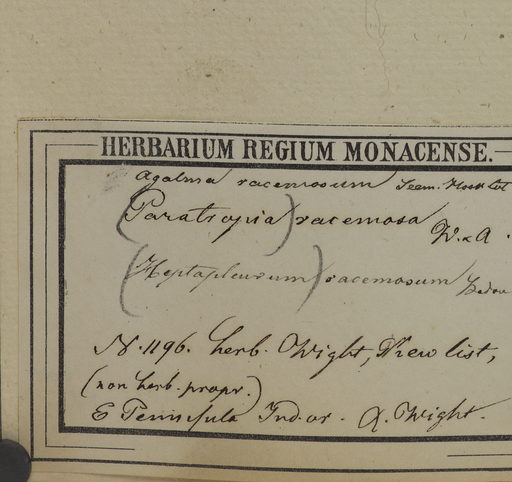 HERBARIUM REGIUM MONACENSE.
Agalma racemosum Seem.
(Paratropia) racemosa W. & A.
(Heptapleurum) racemosum Bedd
N. 1196. herb. Wight, Kew list,
(non herb. propr.)
E Peninsula Ind. or. R. Wight.